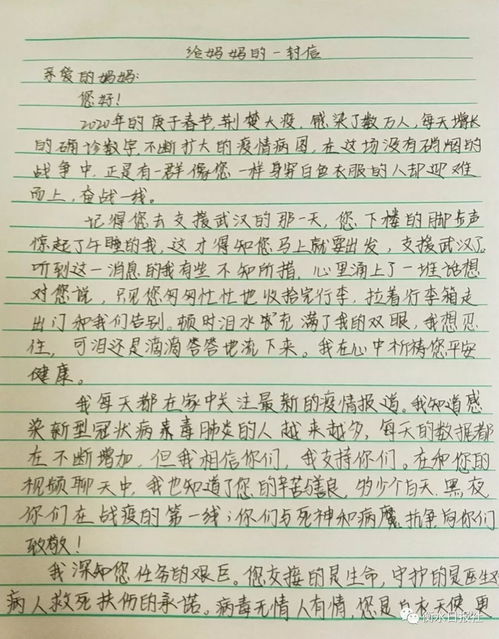 给妈妈的一封信
亲爱的妈妈:
您好!
2020年的庚子春节,荆楚大疫,感染了数万人,每天增长
的确诊数字,不断扩大的疫情病图,在这场没有硝烟的
战争中,正是有一群像您一样身穿白色衣服的人却迎难
而上,奋战一线。
记得您去支援武汉的那一天,您下楼的脚步声
惊起了午睡的我,这才得知您马上就要出发,支援武汉了,
听到这一消息的我有些不知所措,心里涌上了一堆话想
对您说,只见您匆匆忙忙地收拾完行李,拉着行李箱走
出门和我们告别。顿时泪水充满了我的双眼,我想忍
住,可泪还是滴滴答答地流下来。我在心中祈祷您平安
健康。
我每天都在家中关注最新的疫情报道。我知道感
染新型冠状病毒肺炎的人越来越多,每天的数据都
在不断增加,但我相信你们,我支持你们。在和您的
视频聊天中,我也知道了您的辛苦,多少个白天、黑夜
你们在战疫的第一线;你们与死神和病魔抗争向你们
致敬!
我深知您任务的艰巨。您交接的是生命,守护的是医生对
病人救死扶伤的承诺。病毒无情人有情,您是白衣天使,更
衡水日报社